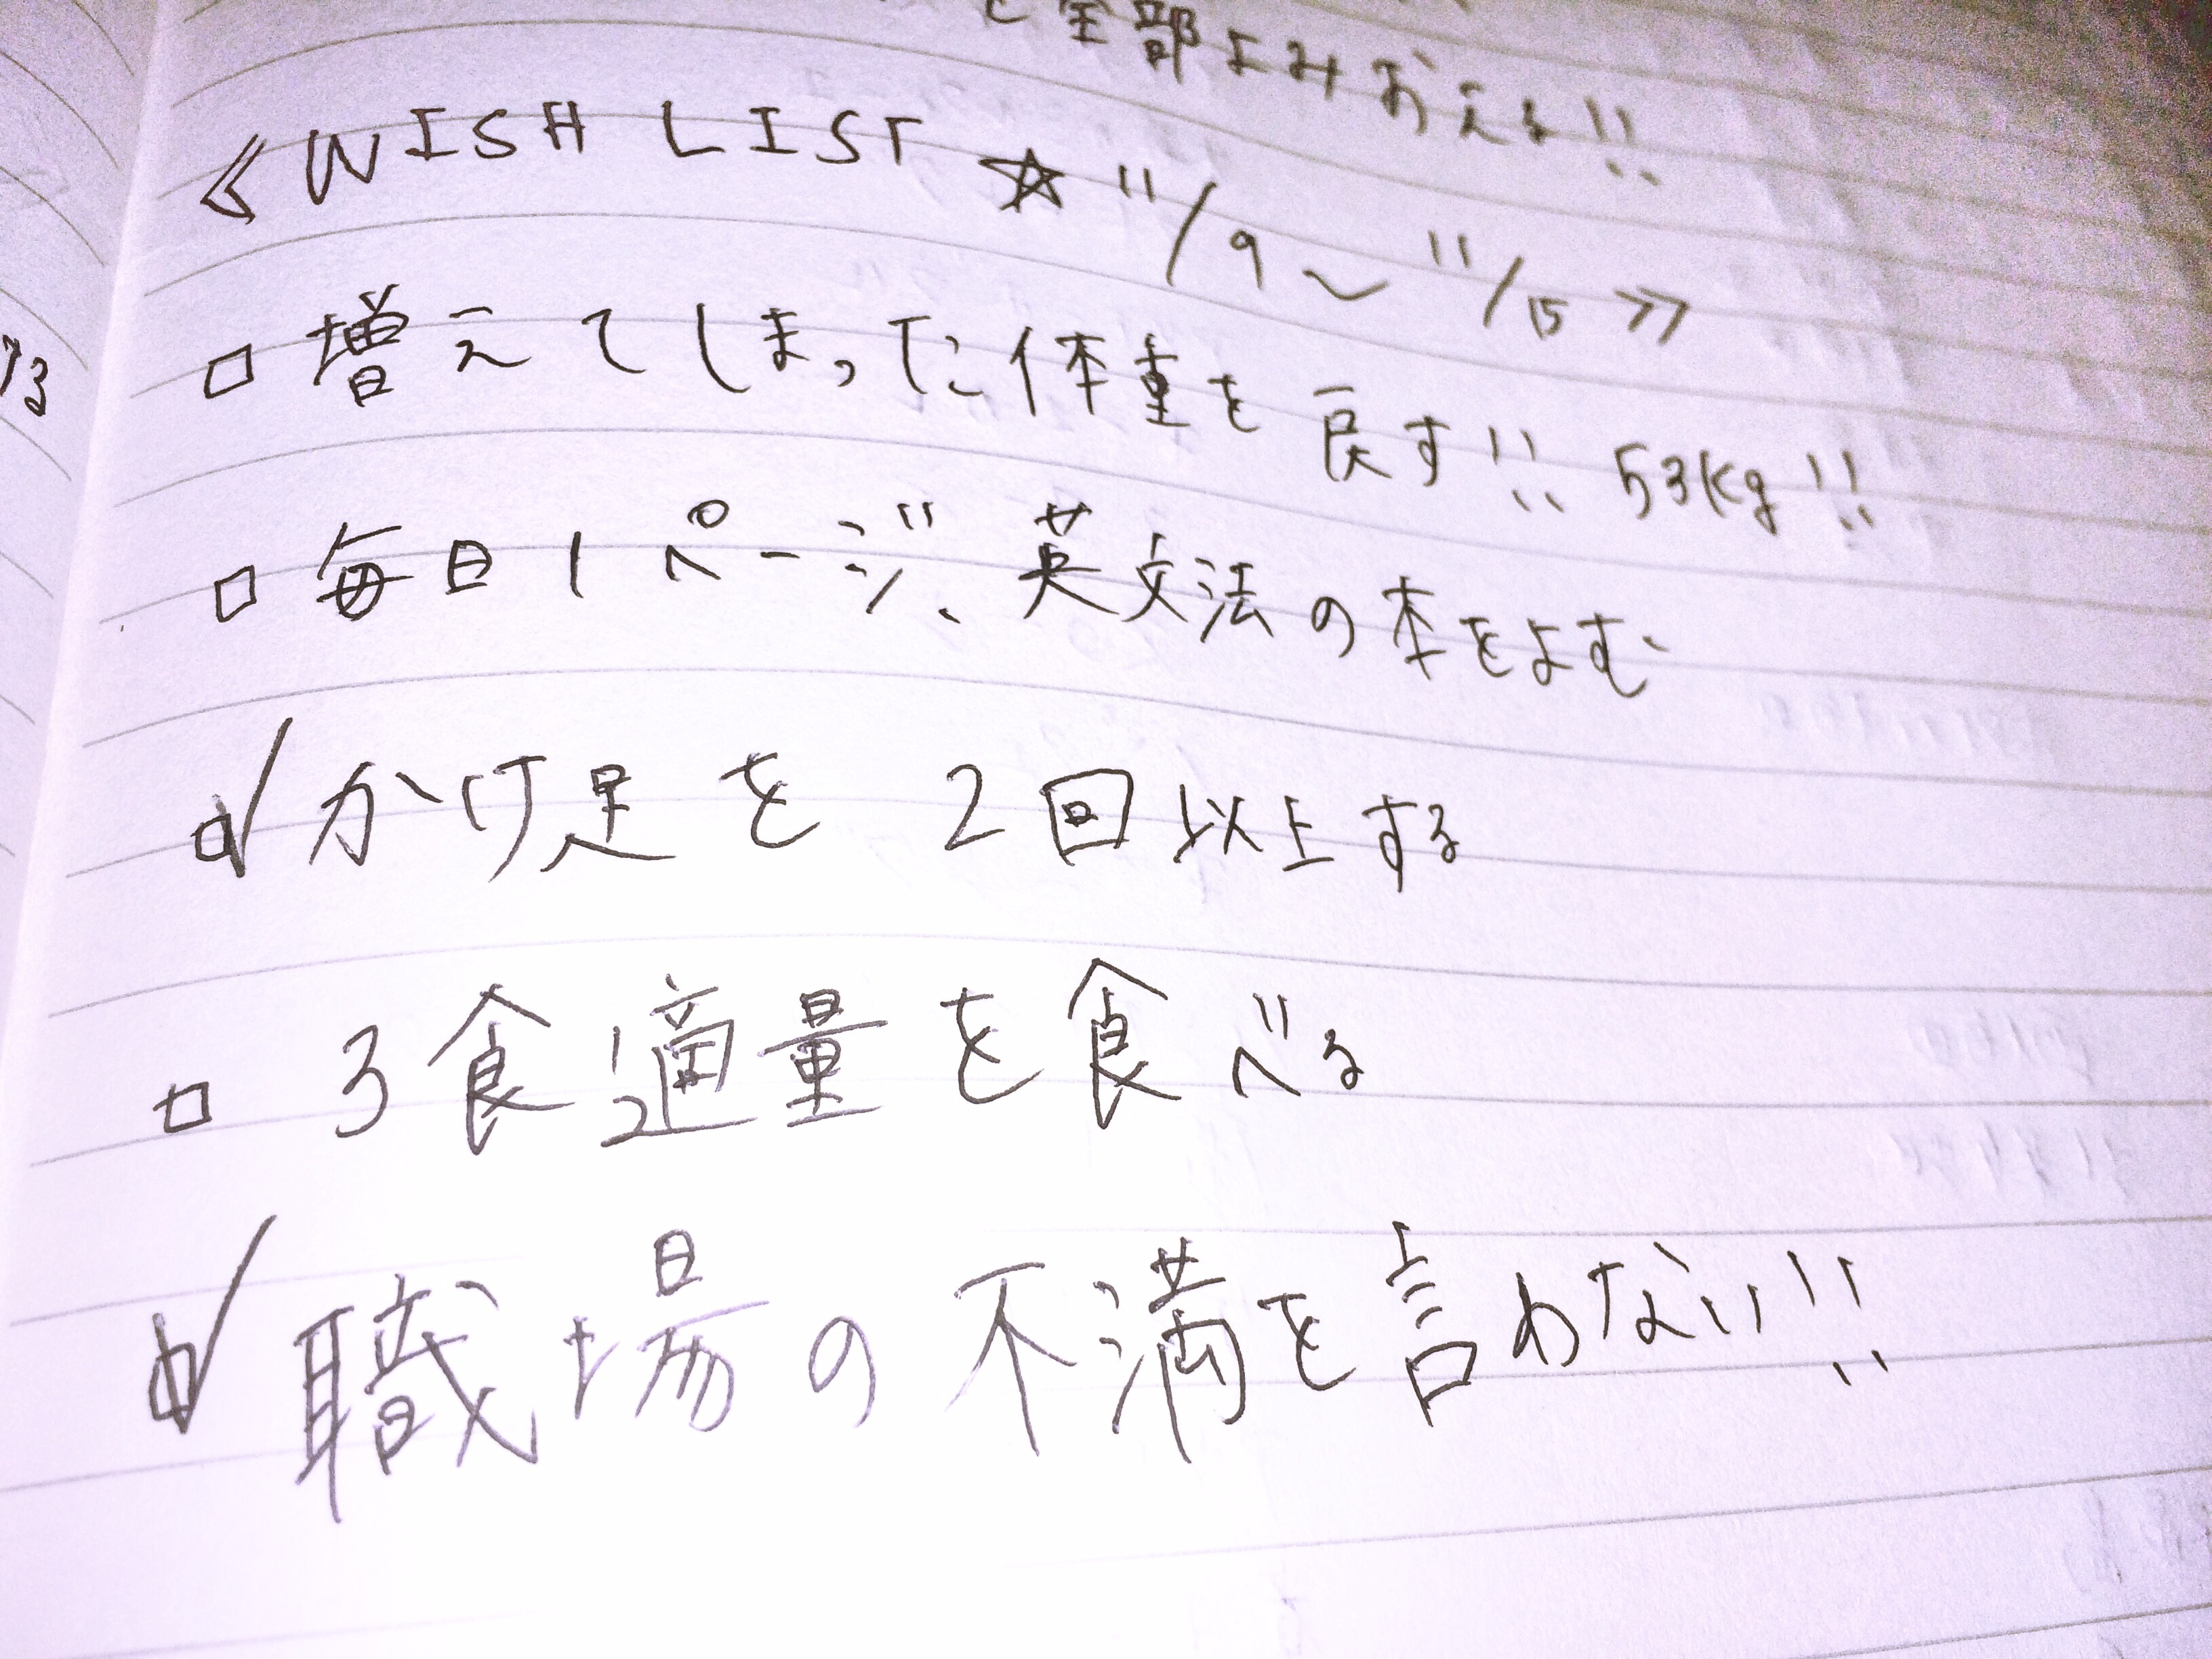 全部よみおえる!!
≪WISH LIST ☆ 11/9〜11/15≫
□ 増えてしまった体重を戻す!! 53kg!!
□ 毎日1ページ、英文法の本をよむ
☑ かけ足を2回以上する
□ 3食適量を食べる
☑ 職場の不満を言わない!!